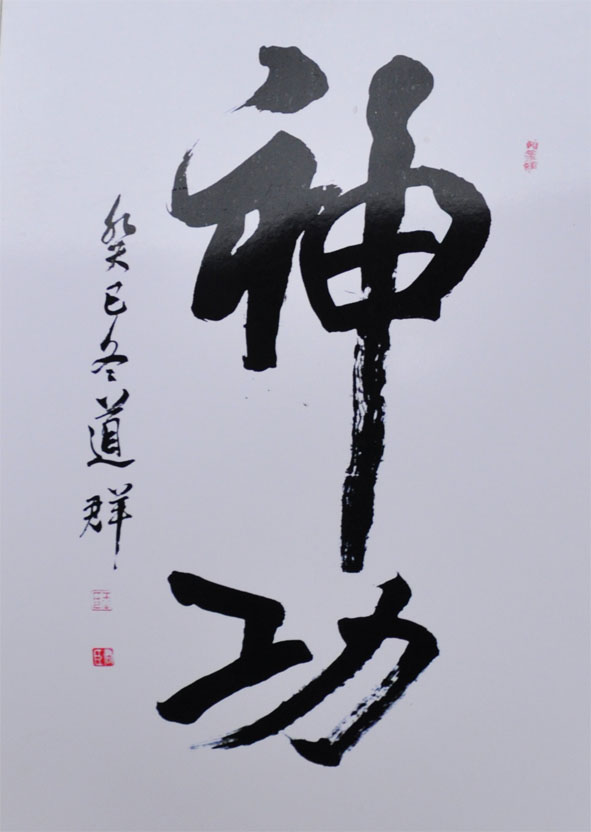 神功
癸巳冬道群